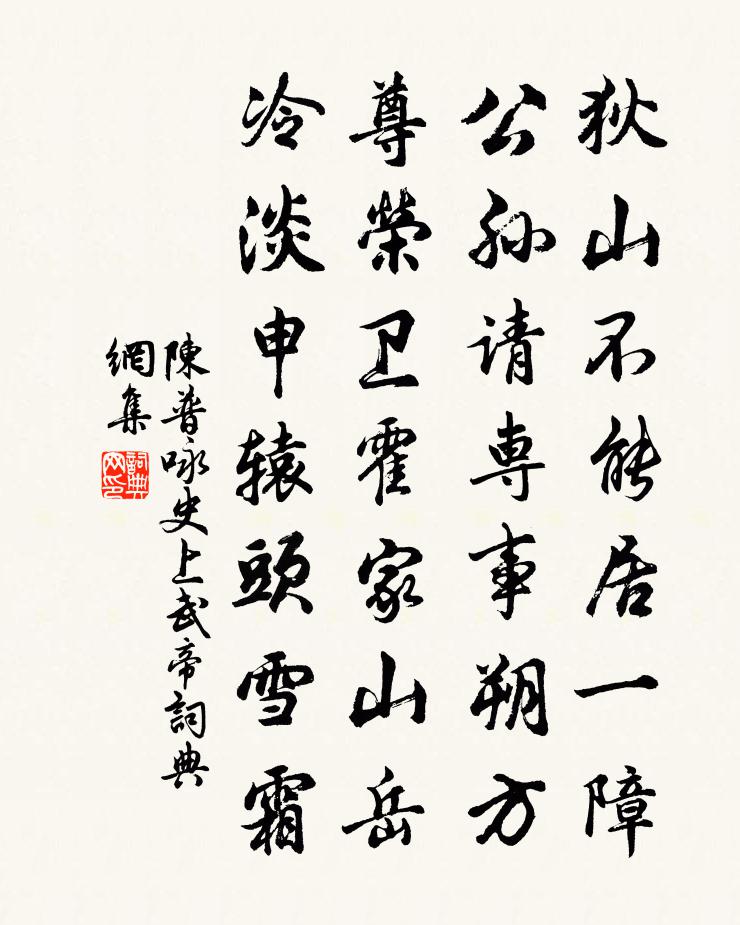 狄山不能居一障
公孙请専事朔方
尊榮卫霍家山岳
冷淡申辕頭雪霜
陳普咏史上武帝詞典
網集
詞典
网印